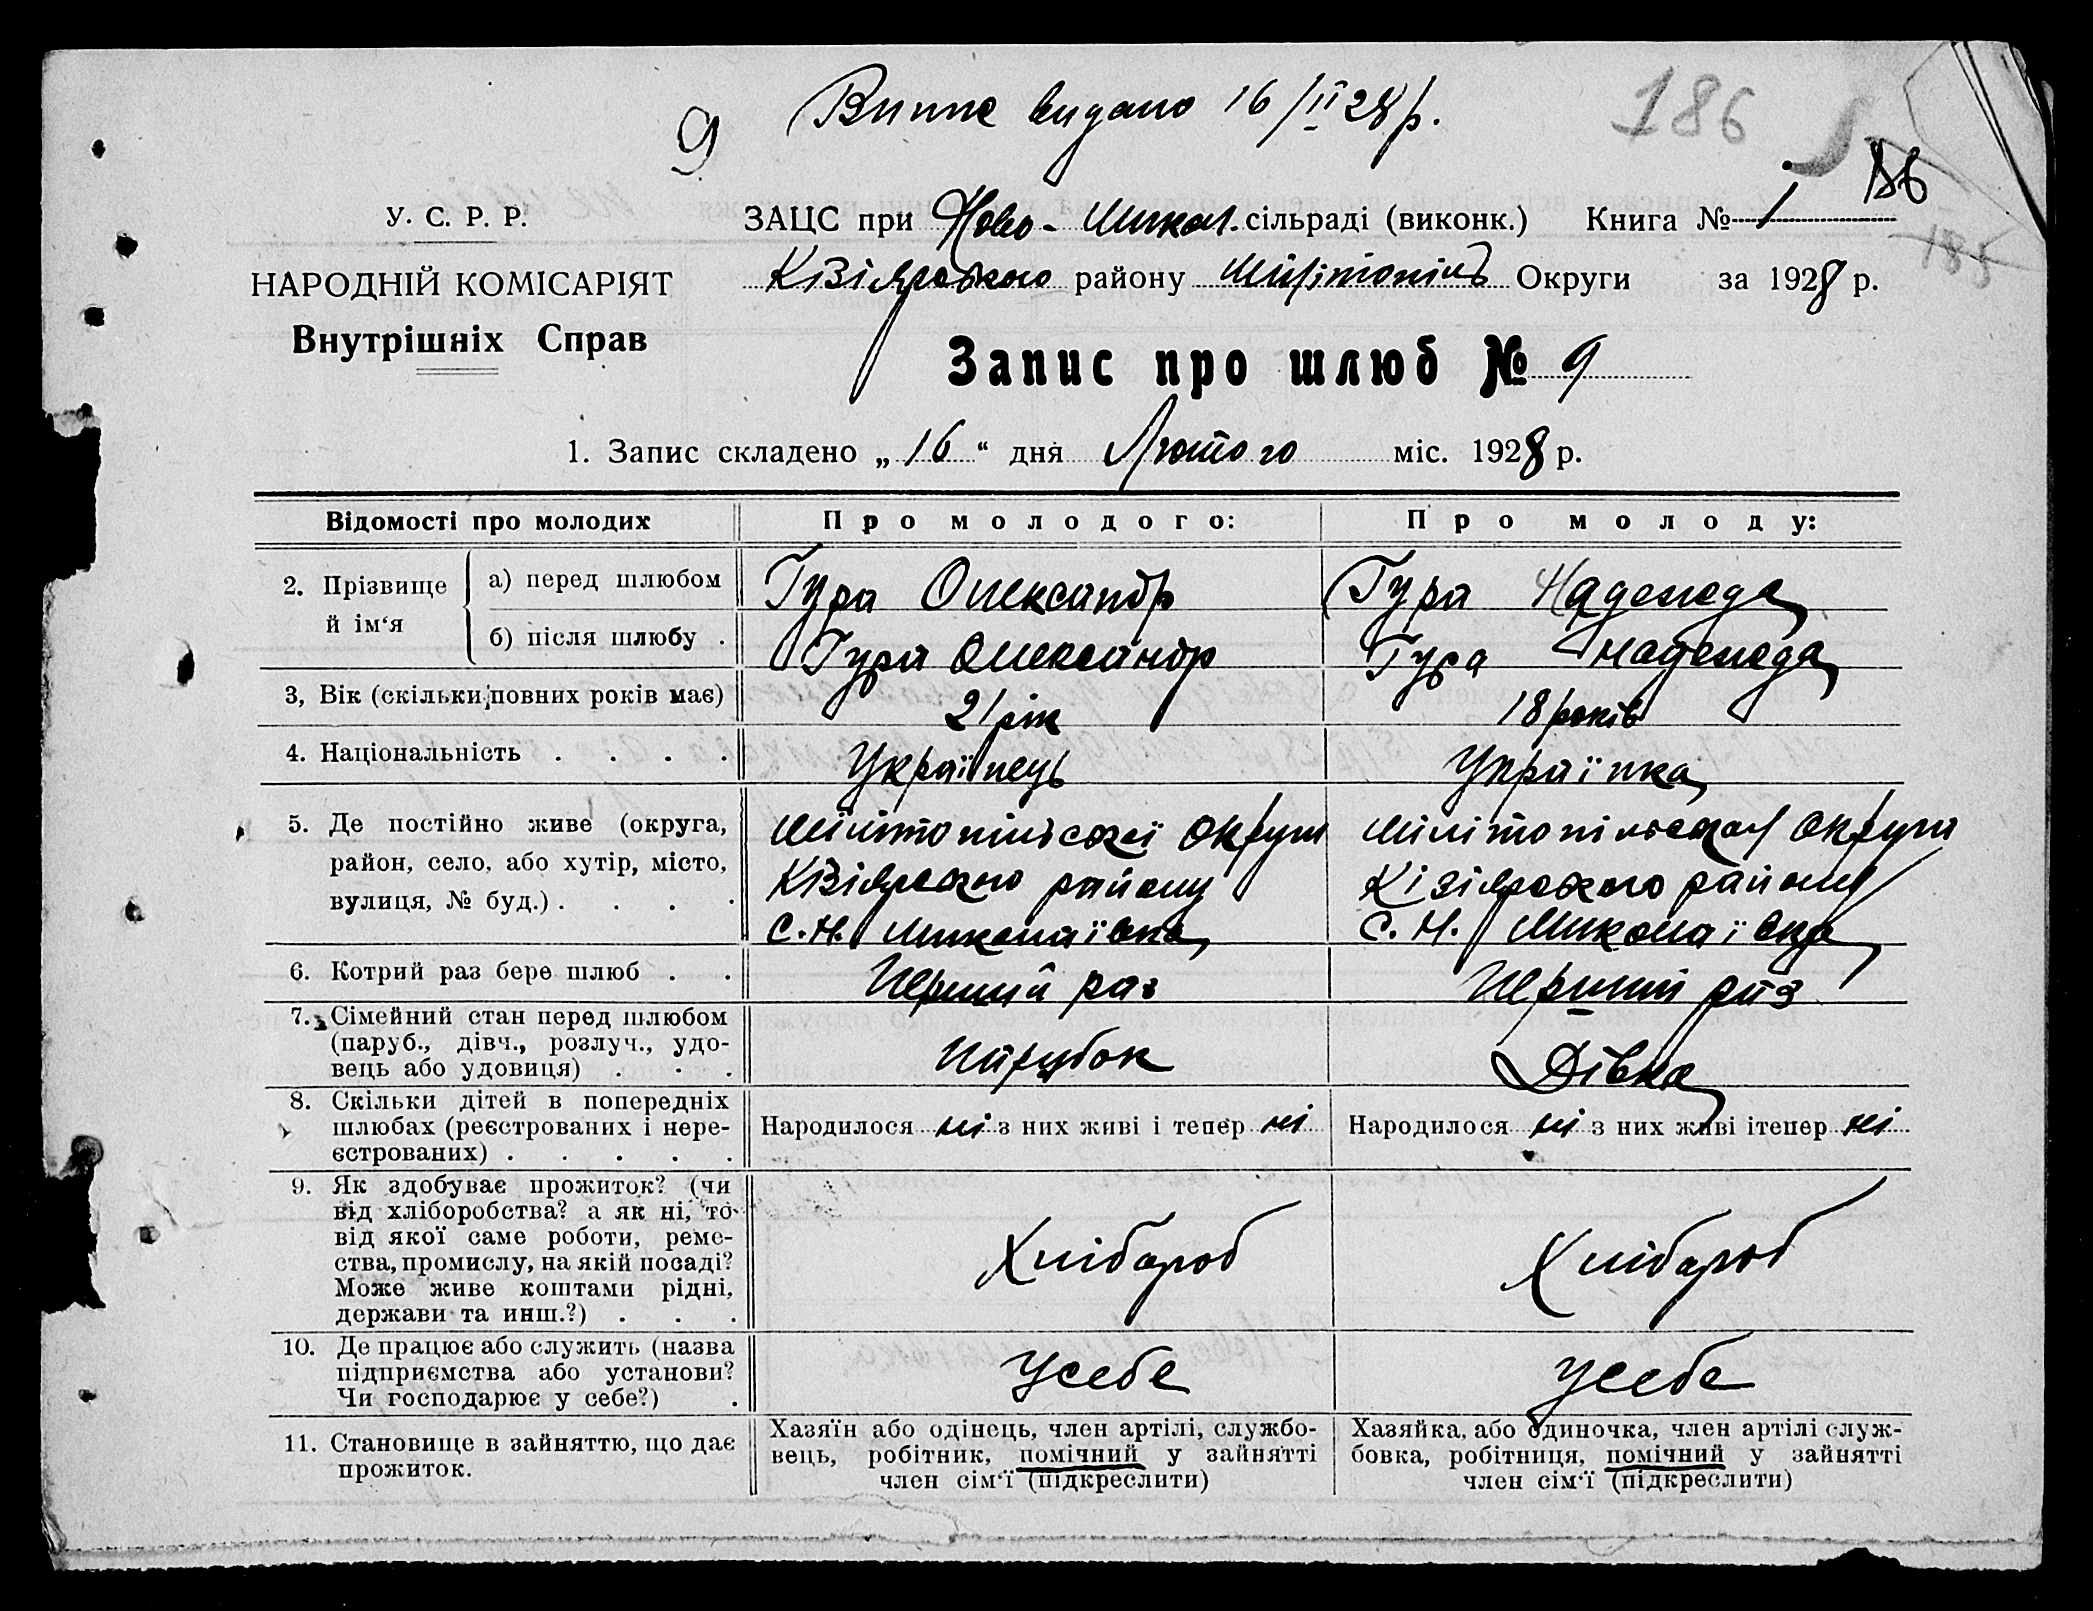 9 Випис видано 16/II 28 р.
186
186
185
У. С. Р. Р.
НАРОДНІЙ КОМІСАРІЯТ
Внутрішніх Справ
ЗАЦС при Ново-Микол. сільраді (виконк.) Книга № 1
Кізіярського району Мілітопіль Округи за 1928 р.
Запис про шлюб № 9
1. Запис складено „ 16 “ дня Лютого міс. 1928 р.
Відомості про молодих
Про молодого:
Про молоду:
2. Прізвище й ім‘я
а) перед шлюбом
Гура Олександр
Гура Надежда
б) після шлюбу .
Гура Олександр
Гура Надежда
3, Вік (скільки повних років має)
21 рік
18 років
4. Національність . . . .
Українець
Українка
5. Де постійно живе (округа,
район, село, або хутір, місто,
вулиця, № буд.) . . . .
Мілітопільської округи
Кізіярського району
С. Н. Миколаївка
Мілітопільской округи
Кізіярського району
С. Н. Миколаївка
6. Котрий раз бере шлюб . .
Перший раз
Перший раз
7. Сімейний стан перед шлюбом
(паруб., дівч., розлуч., удо-
вець або удовиця) . . .
Парубок
Дівка
8. Скільки дітей в попередніх
шлюбах (реєстрованих і нере-
єстрованих) . . . . .
Народилося ні з них живі і тепер ні
Народилося ні з них живі ітепер ні
9. Як здобуває прожиток? (чи
від хліборобства? а як ні, то
від якої саме роботи, реме-
ства, промислу, на якій посаді?
Може живе коштами рідні,
держави та инш.?) . . .
Хлібороб
Хлібороб
10. Де працює або служить (назва
підприємства або установи?
Чи господарює у себе?) .
Усебе
Усебе
11. Становище в зайняттю, що дає
прожиток.
Хазяїн або одінець, член артілі, службо-
вець, робітник, помічний у зайнятті
член сім‘ї (підкреслити)
Хазяйка, або одиночка, член артілі служ-
бовка, робітниця, помічний у зайнятті
член сім‘ї (підкреслити)